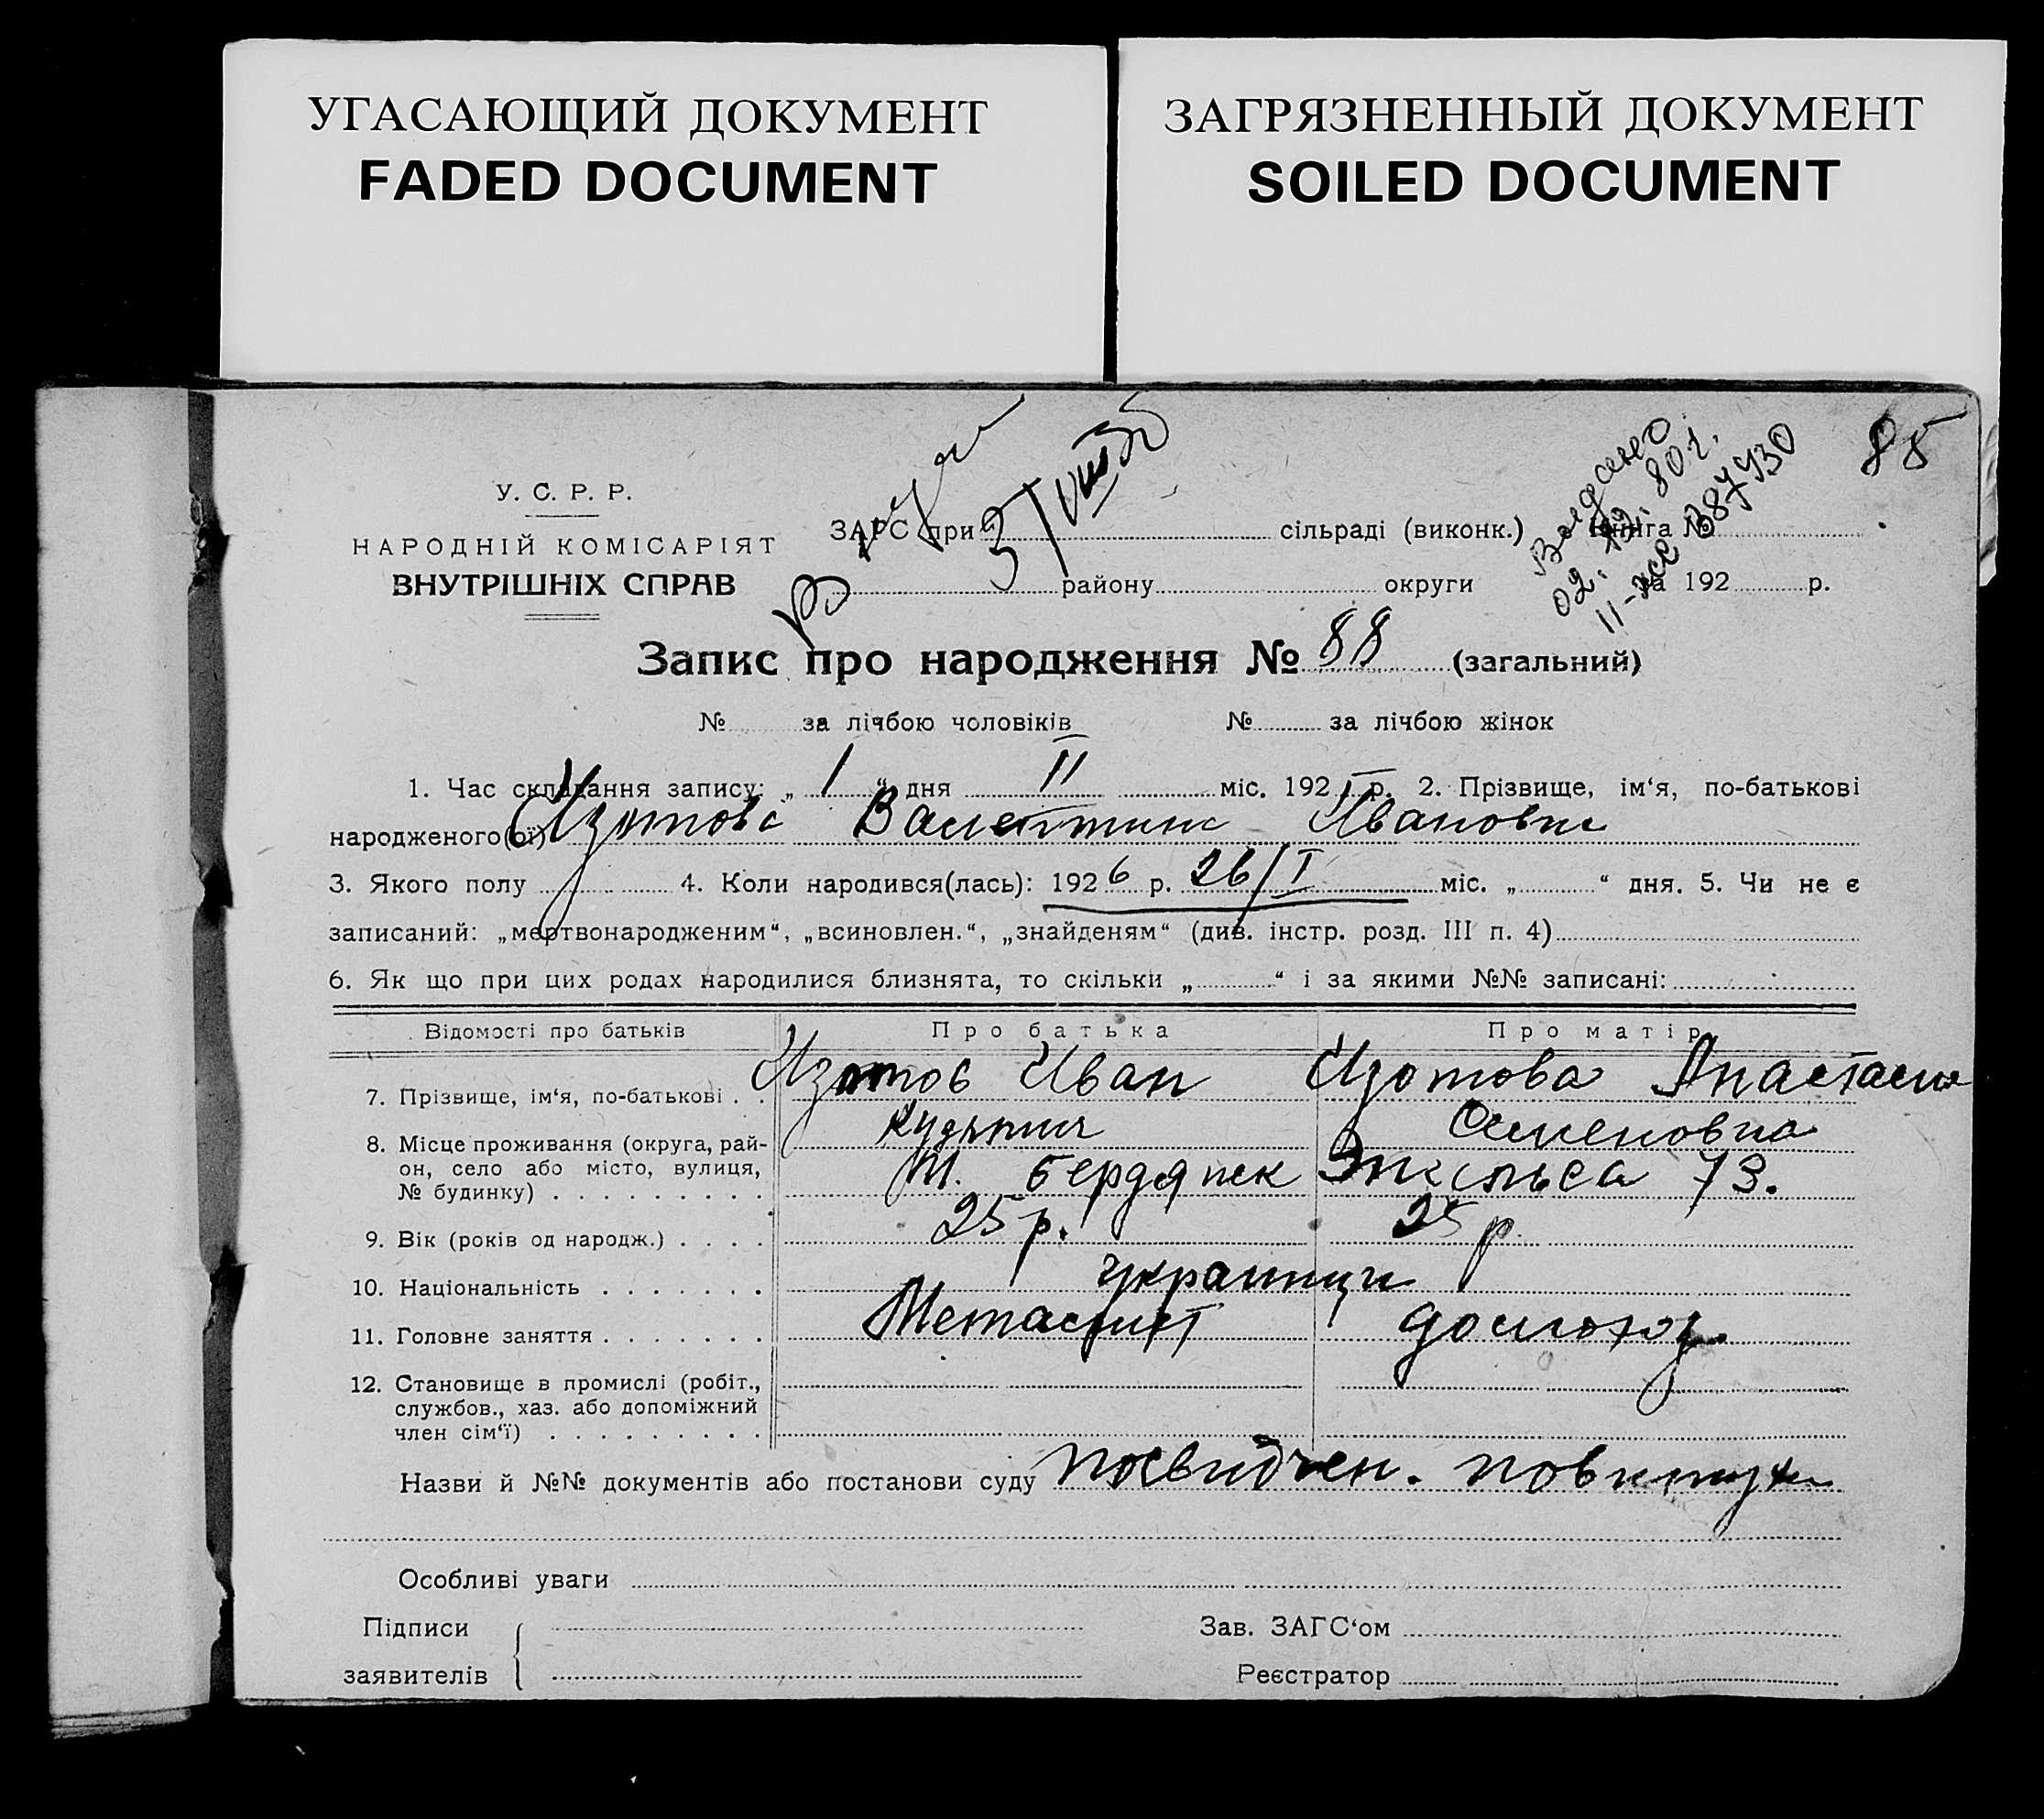 УГАСАЮЩИЙ ДОКУМЕНТ
FADED DOCUMENT
ЗАГРЯЗНЕННЫЙ ДОКУМЕНТ
SOILED DOCUMENT
85
У. С. Р. Р.
НАРОДНІЙ КОМІСАРІЯТ
ВНУТРІШНІХ СПРАВ
ЗАГС при сільраді (виконк.) Книга №
району округи на 192 р.
02. 80 г.
II-ЖС 387430
Запис про народження № 88 (загальний)
№ за лічбою чоловіків № за лічбою жінок
1. Час складання запису: „ 1 “ дня II міс. 192 р. 2. Прізвище, ім‘я, по-батькові
народженого(ої) Изотова Валентина Ивановна
3. Якого полу 4. Коли народився(лась): 1926 р. 26/I міс. „ “ дня. 5. Чи не є
записаний: „мертвонародженим“, „всиновлен.“, „знайденям“ (див. інстр. розд. III п. 4)
6. Як що при цих родах народилися близнята, то скільки „ “ і за якими №№ записані:
Відомості про батьків Про батька Про матір
7. Прізвище, ім‘я, по-батькові . . Изотов Иван Изотова Анастасия
Семеновна
8. Місце проживання (округа, рай-
он, село або місто, вулиця,
№ будинку) . . . . . . . . . м. Бердянск Энгельса 73.
9. Вік (років од народж.) . . . . 25 р. 25 р
10. Національність . . . . . . . українци
11. Головне заняття . . . . . . . Металист домохоз.
12. Становище в промислі (робіт.,
службов., хаз. або допоміжний
член сім‘ї) . . . . . . . . .
Назви й №№ документів або постанови суду посвидчен. повитухи
Особливі уваги
Підписи
заявителів
Зав. ЗАГС‘ом
Реєстратор